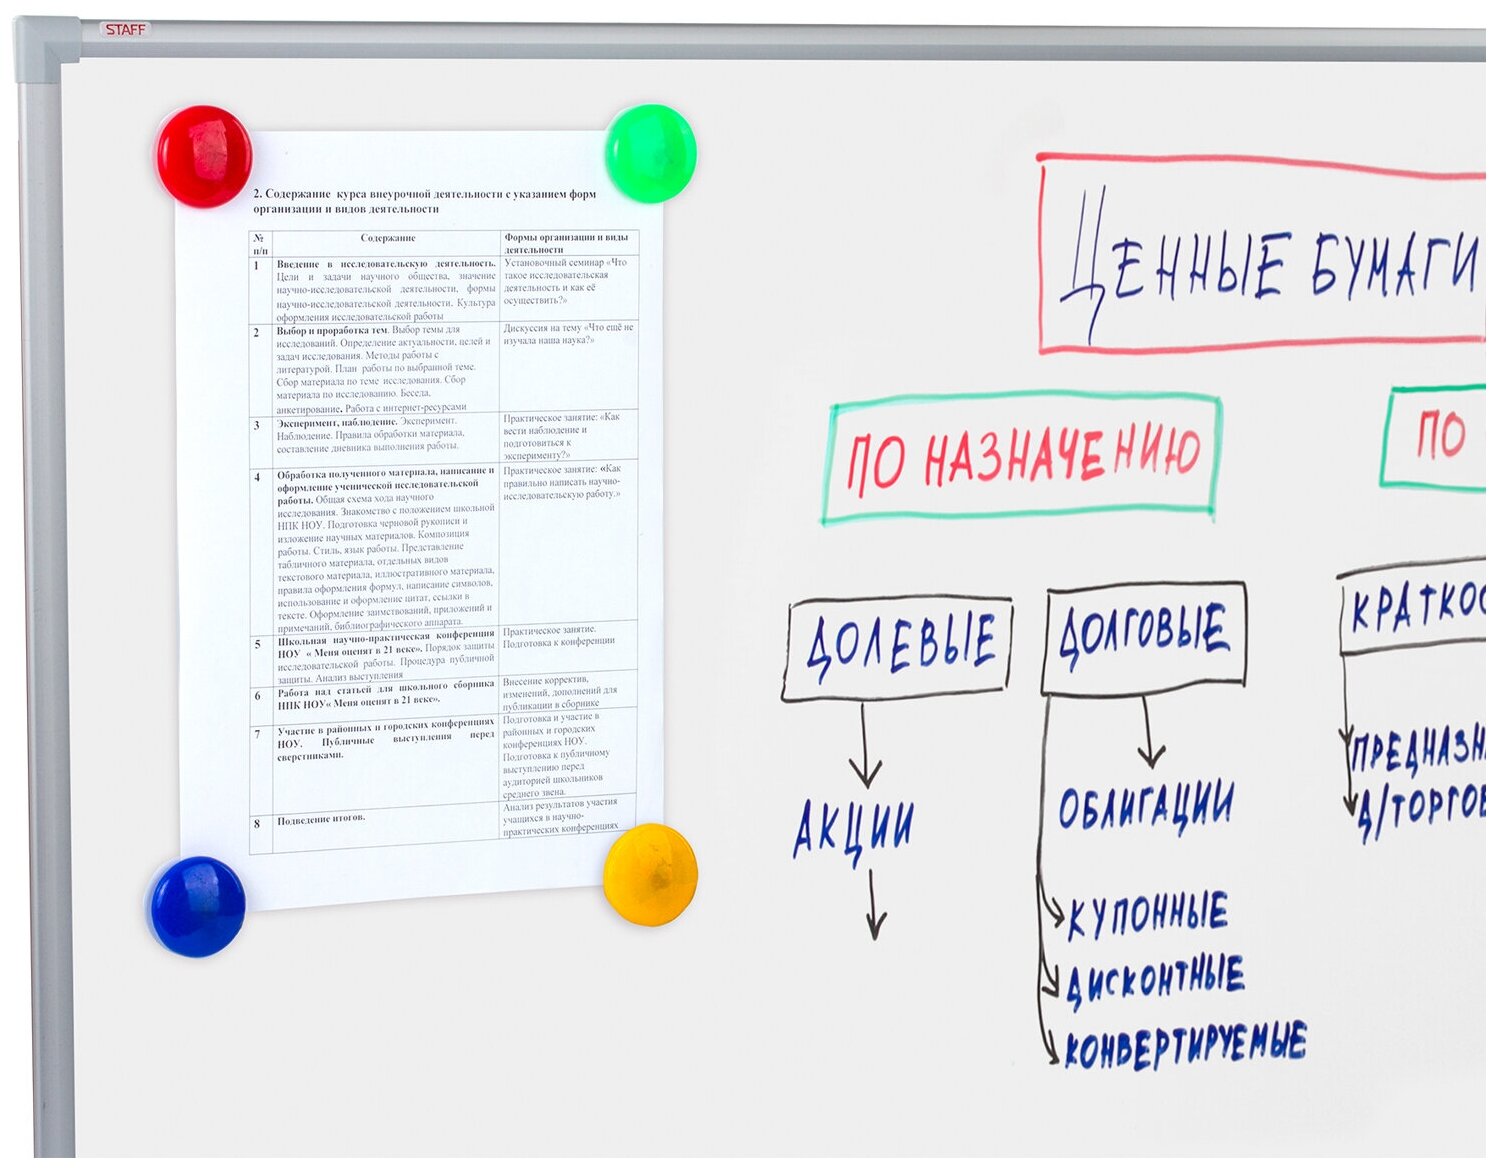 STAFF
2. Содержание курса внеурочной деятельности с указанием форм
организации и видов деятельности
№
п/п
Содержание
Формы организации и виды
деятельности
1
Введение в исследовательскую деятельность.
Цели и задачи научного общества, значение
научно-исследовательской деятельности, формы
научно-исследовательской деятельности. Культура
оформления исследовательской работы
Установочный семинар «Что
такое исследовательская
деятельность и как её
осуществить?»
2
Выбор и проработка тем. Выбор темы для
исследований. Определение актуальности, целей и
задач исследования. Методы работы с
литературой. План работы по выбранной теме.
Сбор материала по теме исследования. Сбор
материала по исследованию. Беседа,
анкетирование. Работа с интернет-ресурсами
Дискуссия на тему «Что ещё не
изучала наша наука?»
3
Эксперимент, наблюдение. Эксперимент.
Наблюдение. Правила обработки материала,
составление дневника выполнения работы.
Практическое занятие: «Как
вести наблюдение и
подготовиться к
эксперименту?»
4
Обработка полученного материала, написание и
оформление ученической исследовательской
работы. Общая схема хода научного
исследования. Знакомство с положением школьной
НПК НОУ. Подготовка черновой рукописи и
изложение научных материалов. Композиция
работы. Стиль, язык работы. Представление
табличного материала, отдельных видов
текстового материала, иллюстративного материала,
правила оформления формул, написание символов,
использование и оформление цитат, ссылки в
тексте. Оформление заимствований, приложений и
примечаний, библиографического аппарата.
Практическое занятие: «Как
правильно написать научно-
исследовательскую работу.»
5
Школьная научно-практическая конференция
НОУ « Меня оценят в 21 веке». Порядок защиты
исследовательской работы. Процедура публичной
защиты. Анализ выступления
Практическое занятие.
Подготовка к конференции
6
Работа над статьей для школьного сборника
НПК НОУ« Меня оценят в 21 веке».
Внесение корректив,
изменений, дополнений для
публикации в сборнике
7
Участие в районных и городских конференциях
НОУ. Публичные выступления перед
сверстниками.
Подготовка и участие в
районных и городских
конференциях НОУ.
Подготовка к публичному
выступлению перед
аудиторией школьников
среднего звена.
8
Подведение итогов.
Анализ результатов участия
учащихся в научно-
практических конференциях
ЦЕННЫЕ БУМАГИ
ПО НАЗНАЧЕНИЮ
ПО
ДОЛЕВЫЕ
ДОЛГОВЫЕ
КРАТКОС
АКЦИИ
ОБЛИГАЦИИ
КУПОННЫЕ
ДИСКОНТНЫЕ
КОНВЕРТИРУЕМЫЕ
ПРЕДНАЗН
Д/ТОРГОВ